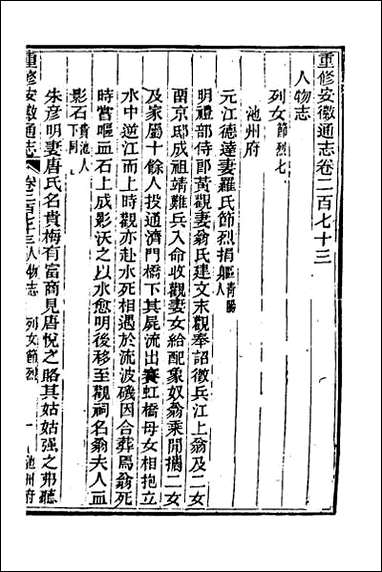 重修安徽通志卷二百七十三
人物志
列女節烈七
池州府
元江德達妻羅氏節烈捐軀青陽人
明禮部侍郎黃觀妻翁氏建文末觀奉詔徵兵江上翁及二女
留京邸成祖靖難兵入命收觀妻女給配象奴翁乘閒攜二女
及家屬十餘人投通濟門橋下其屍流出賽虹橋母女相抱立
水中逆江而上時觀亦赴水死相遇於流波磯因合葬焉翁死
時嘗嘔血石上成影沃之以水愈明後移至觀祠名翁夫人血
影石貴池人下同
朱彥明妻唐氏名貴梅有富商見唐悅之賂其姑姑强之弗聽
重修安徽通志 卷二百七十三 人物志 列女節烈 一 池州府